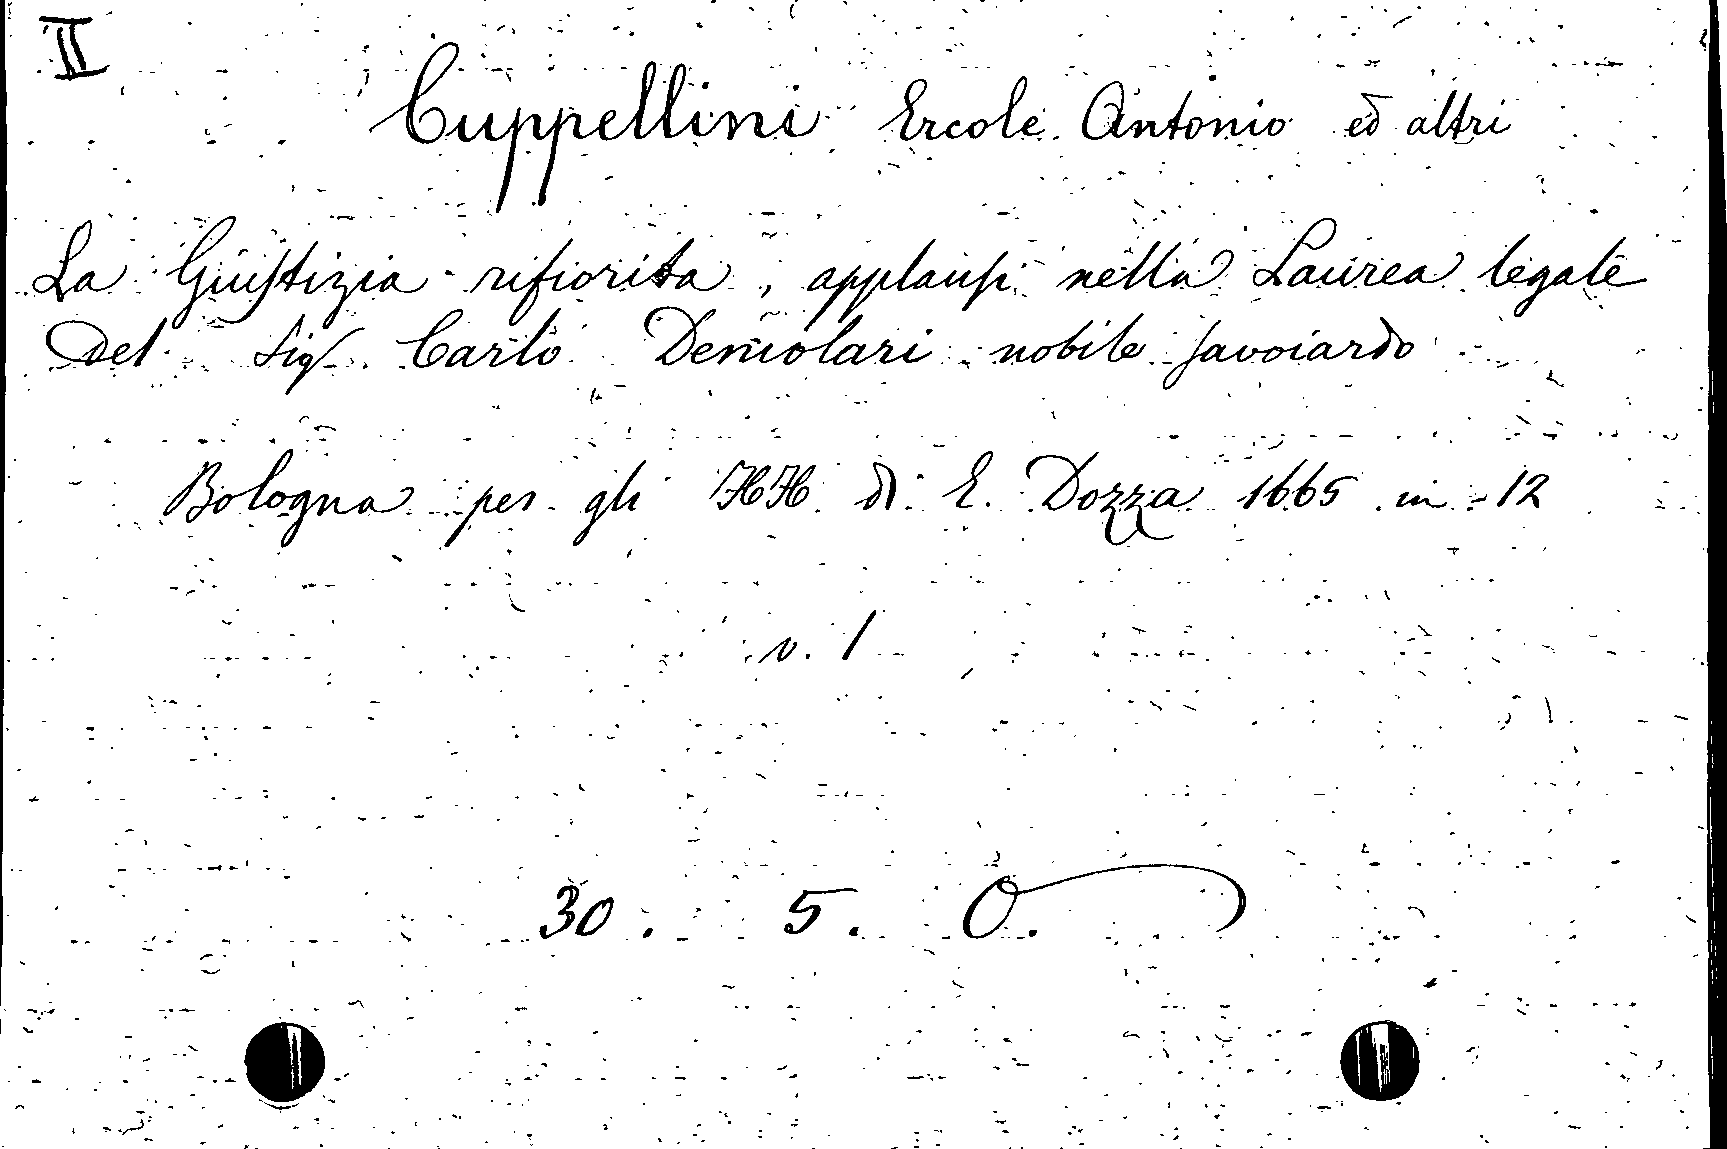 II
Cuppellini Ercole Antonio ed altri
La Giustizia rifiorita, applausi nella Laurea legale
del Sig. Carlo Demolari nobile savoiardo
Bologna per gli HH. di E. Dozza 1665 in-12
v. 1
30. 5. O.